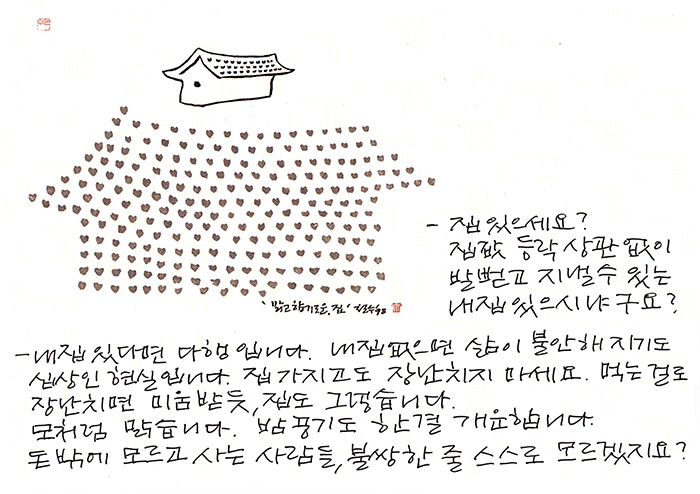 '맑고 향기로운, 집'
- 집 있으세요?
집값 등락 상관 없이
발뻗고 지낼수 있는
내집 있으시냐구요?
- 내집 있다면 다행입니다. 내집없으면 삶이 불안해지기도
십상인 현실입니다. 집 가지고도 장난치지 마세요. 먹는걸로
장난치면 미움받듯, 집도 그렇습니다.
모처럼 맑습니다. 밤풍기도 한결 개운합니다.
돈밖에 모르고 사는 사람들, 불쌍한 줄 스스로 모르겠지요?